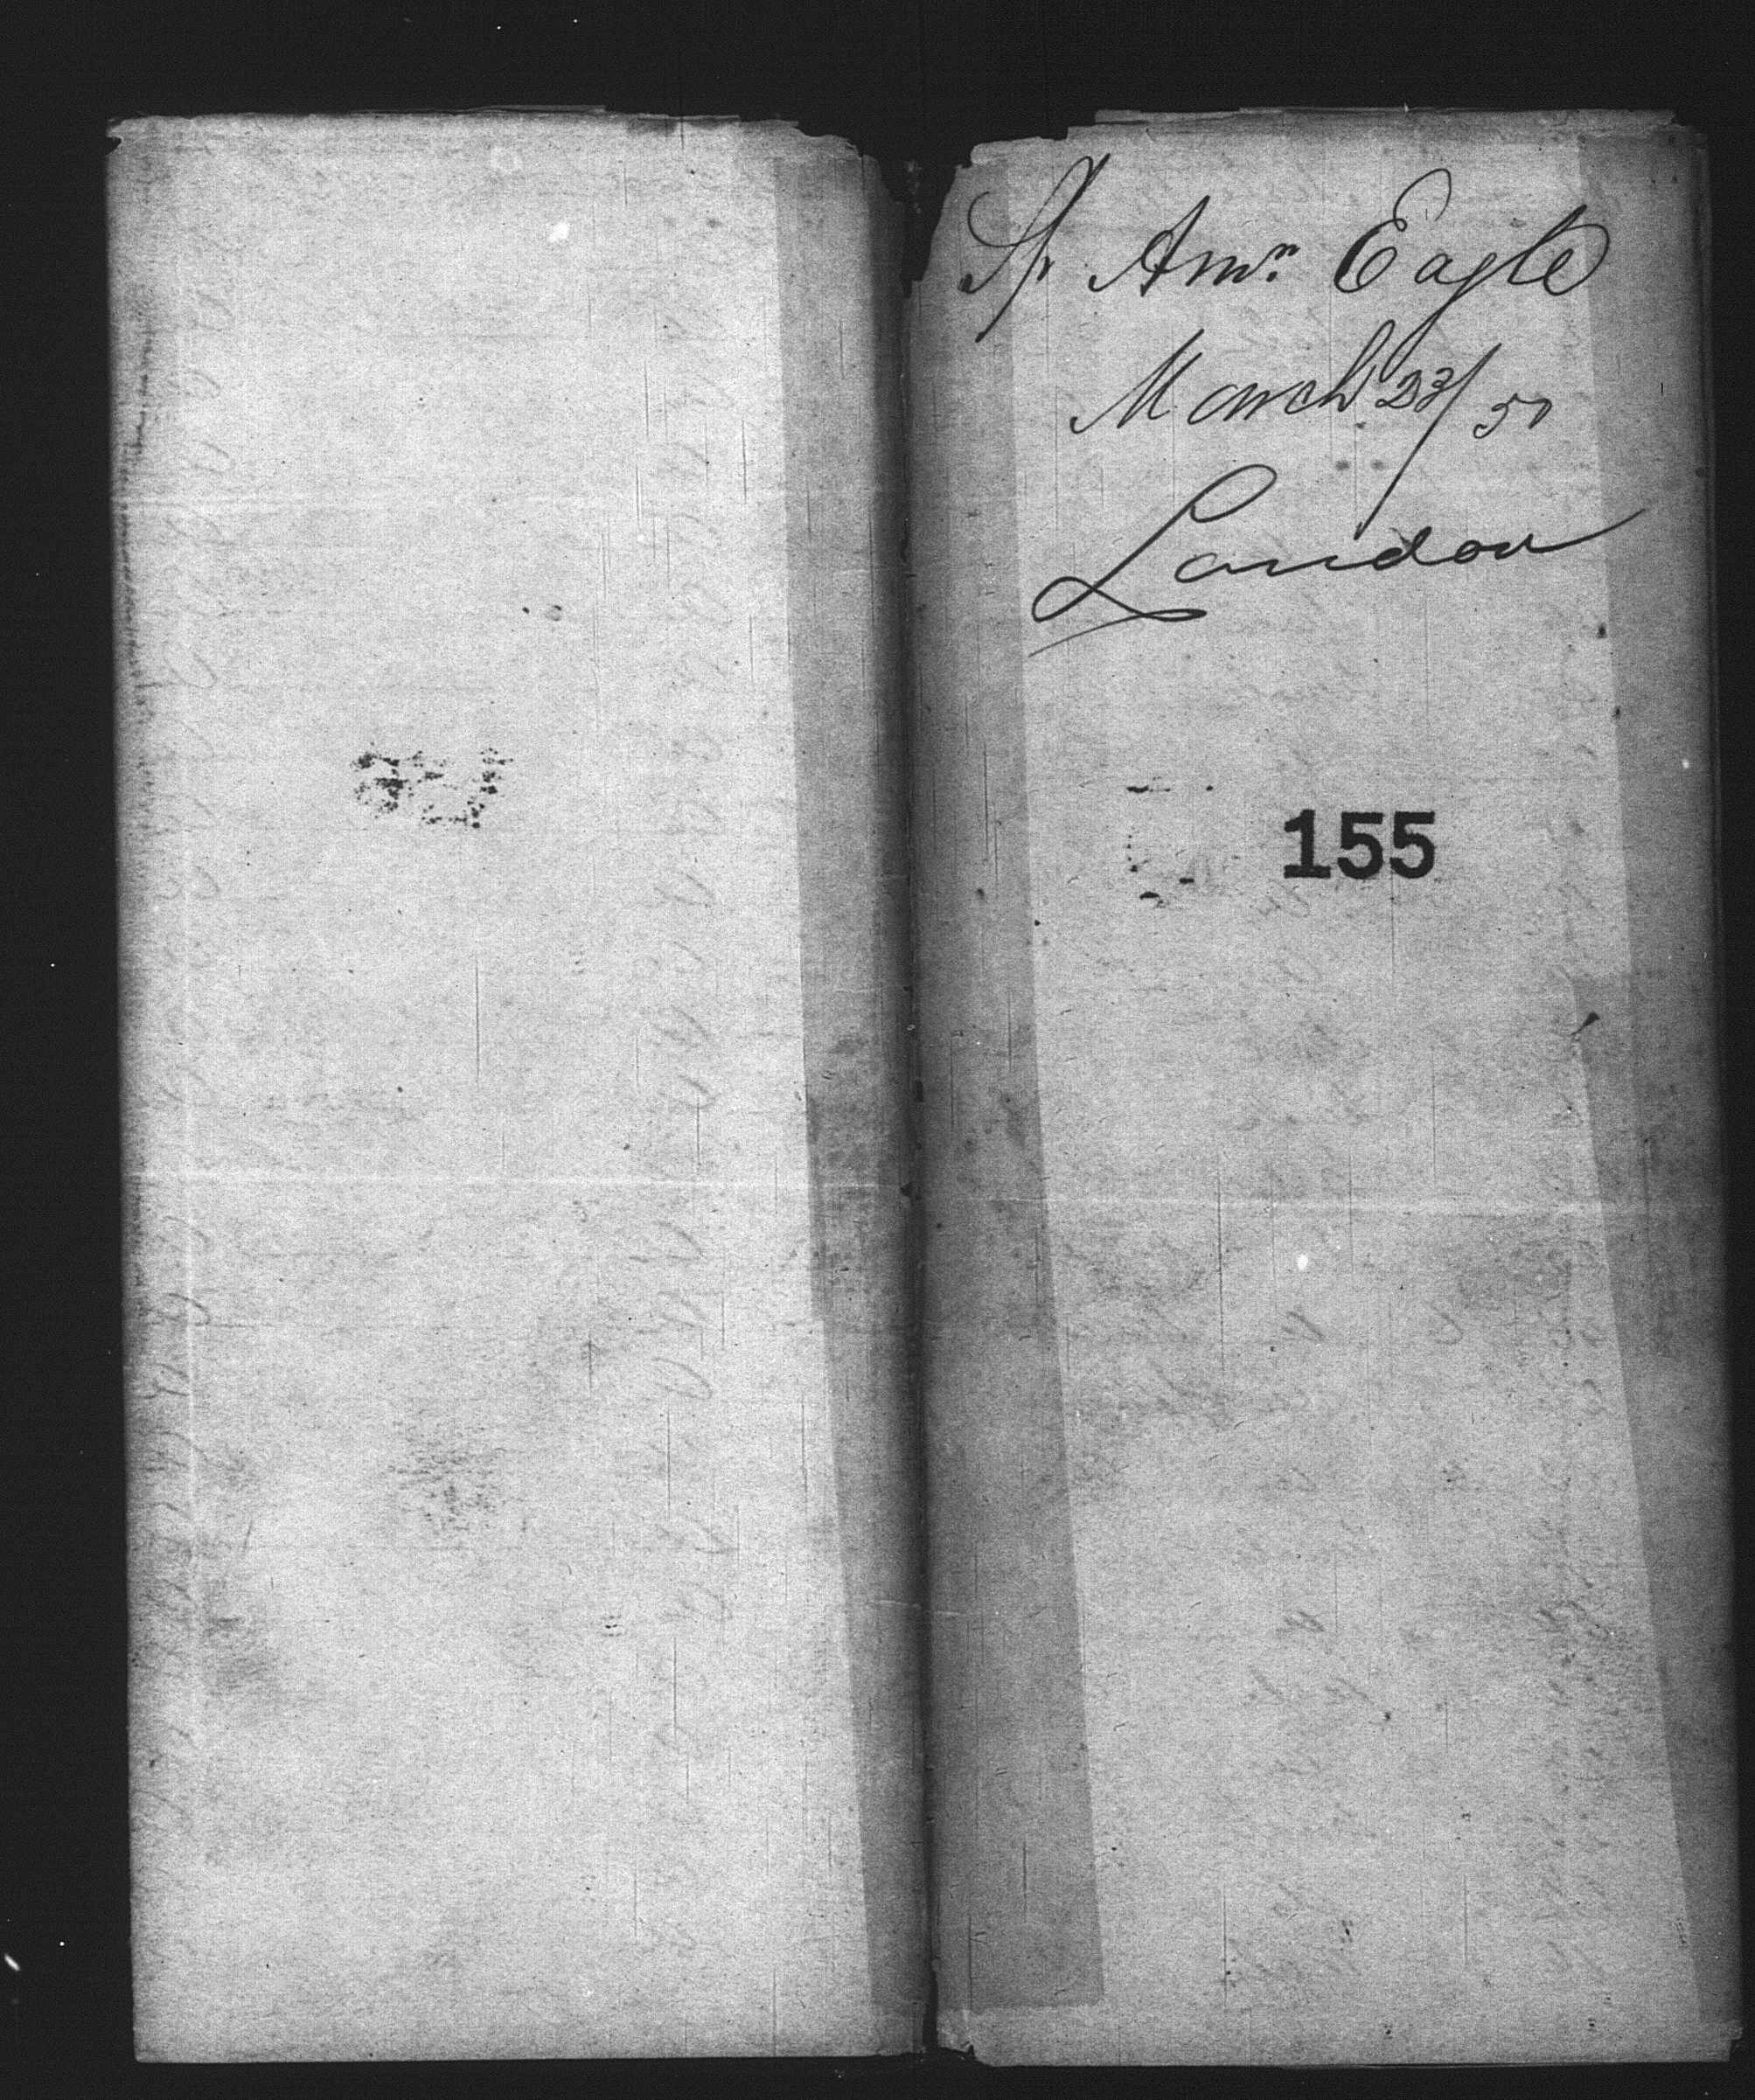 Sp. Amn Eagle
March 23/50
London
155